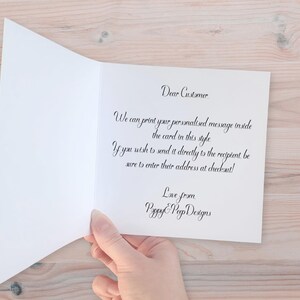 Dear Customer
We can print your personalised message inside
the card in this style.
If you wish to send it directly to the recipient, be
sure to enter their address at checkout!
Love from
Poppy&PopDesigns